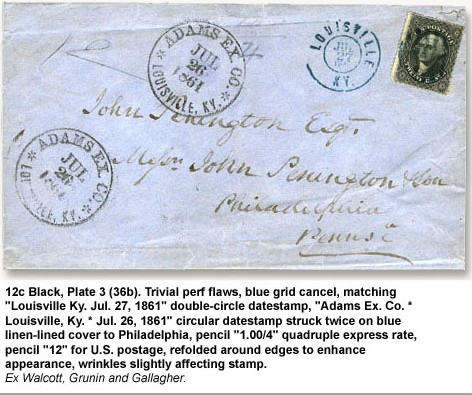 ADAMS EX. CO.
JUL
26
1861
LOUISVILLE, KY.
LOUISVILLE
JUL
KY.
ADAMS EX. CO.
JUL
26
1861
LOUISVILLE, KY.
John Penington Esqr.
Messrs John Penington & Son
Philadelphia
Penns
12c Black, Plate 3 (36b). Trivial perf flaws, blue grid cancel, matching
"Louisville Ky. Jul. 27, 1861" double-circle datestamp, "Adams Ex. Co. *
Louisville, Ky. * Jul. 26, 1861" circular datestamp struck twice on blue
linen-lined cover to Philadelphia, pencil "1.00/4" quadruple express rate,
pencil "12" for U.S. postage, refolded around edges to enhance
appearance, wrinkles slightly affecting stamp.
Ex Walcott, Grunin and Gallagher.